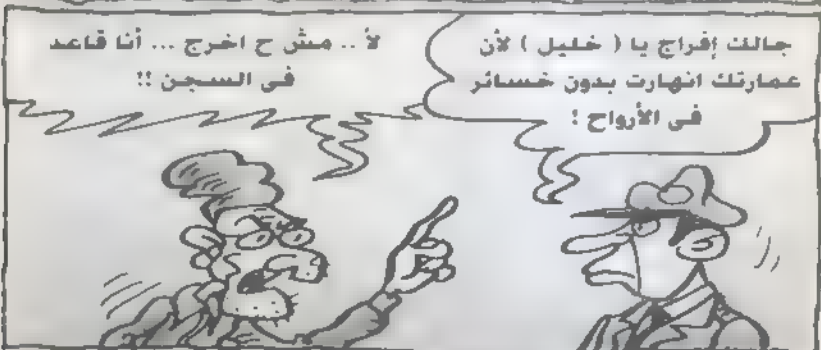 جالك إفراج يا ( خليل ) لأن
عمارتك انهارت بدون خسائر
فى الأرواح !
لأ .. مش ح اخرج ... أنا قاعد
فى السجن !!